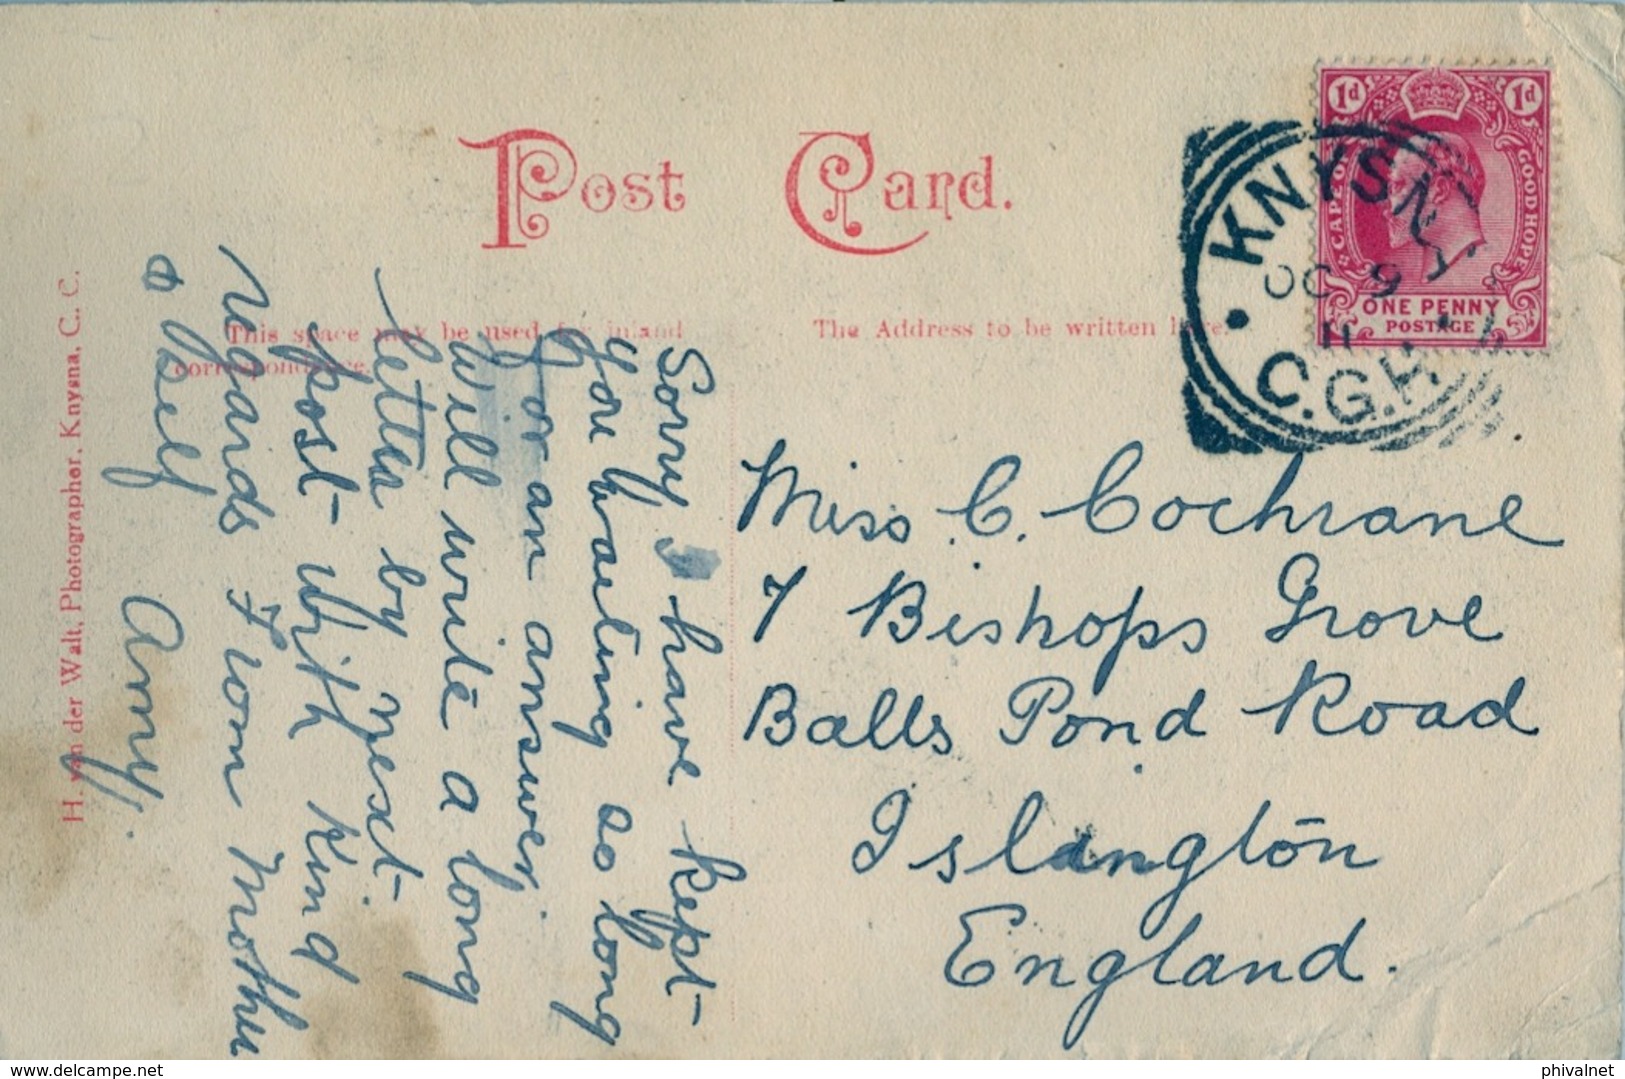 Post Card.
This space may be used for inland
correspondence.
The Address to be written here.
H. van der Walt, Photographer, Knysna, C. C.
1d 1d
CAPE OF GOOD HOPE
ONE PENNY
POSTAGE
KNYSNA
OC 9
11
C.G.H.
Sorry I have kept
you waiting so long
for an answer.
Will write a long
letter by next
post with kind
regards from Mother
& self
Amy.
Miss C. Cochrane
7 Bishops Grove
Balls Pond Road
Islington
England.
delcampe.net
phivalnet